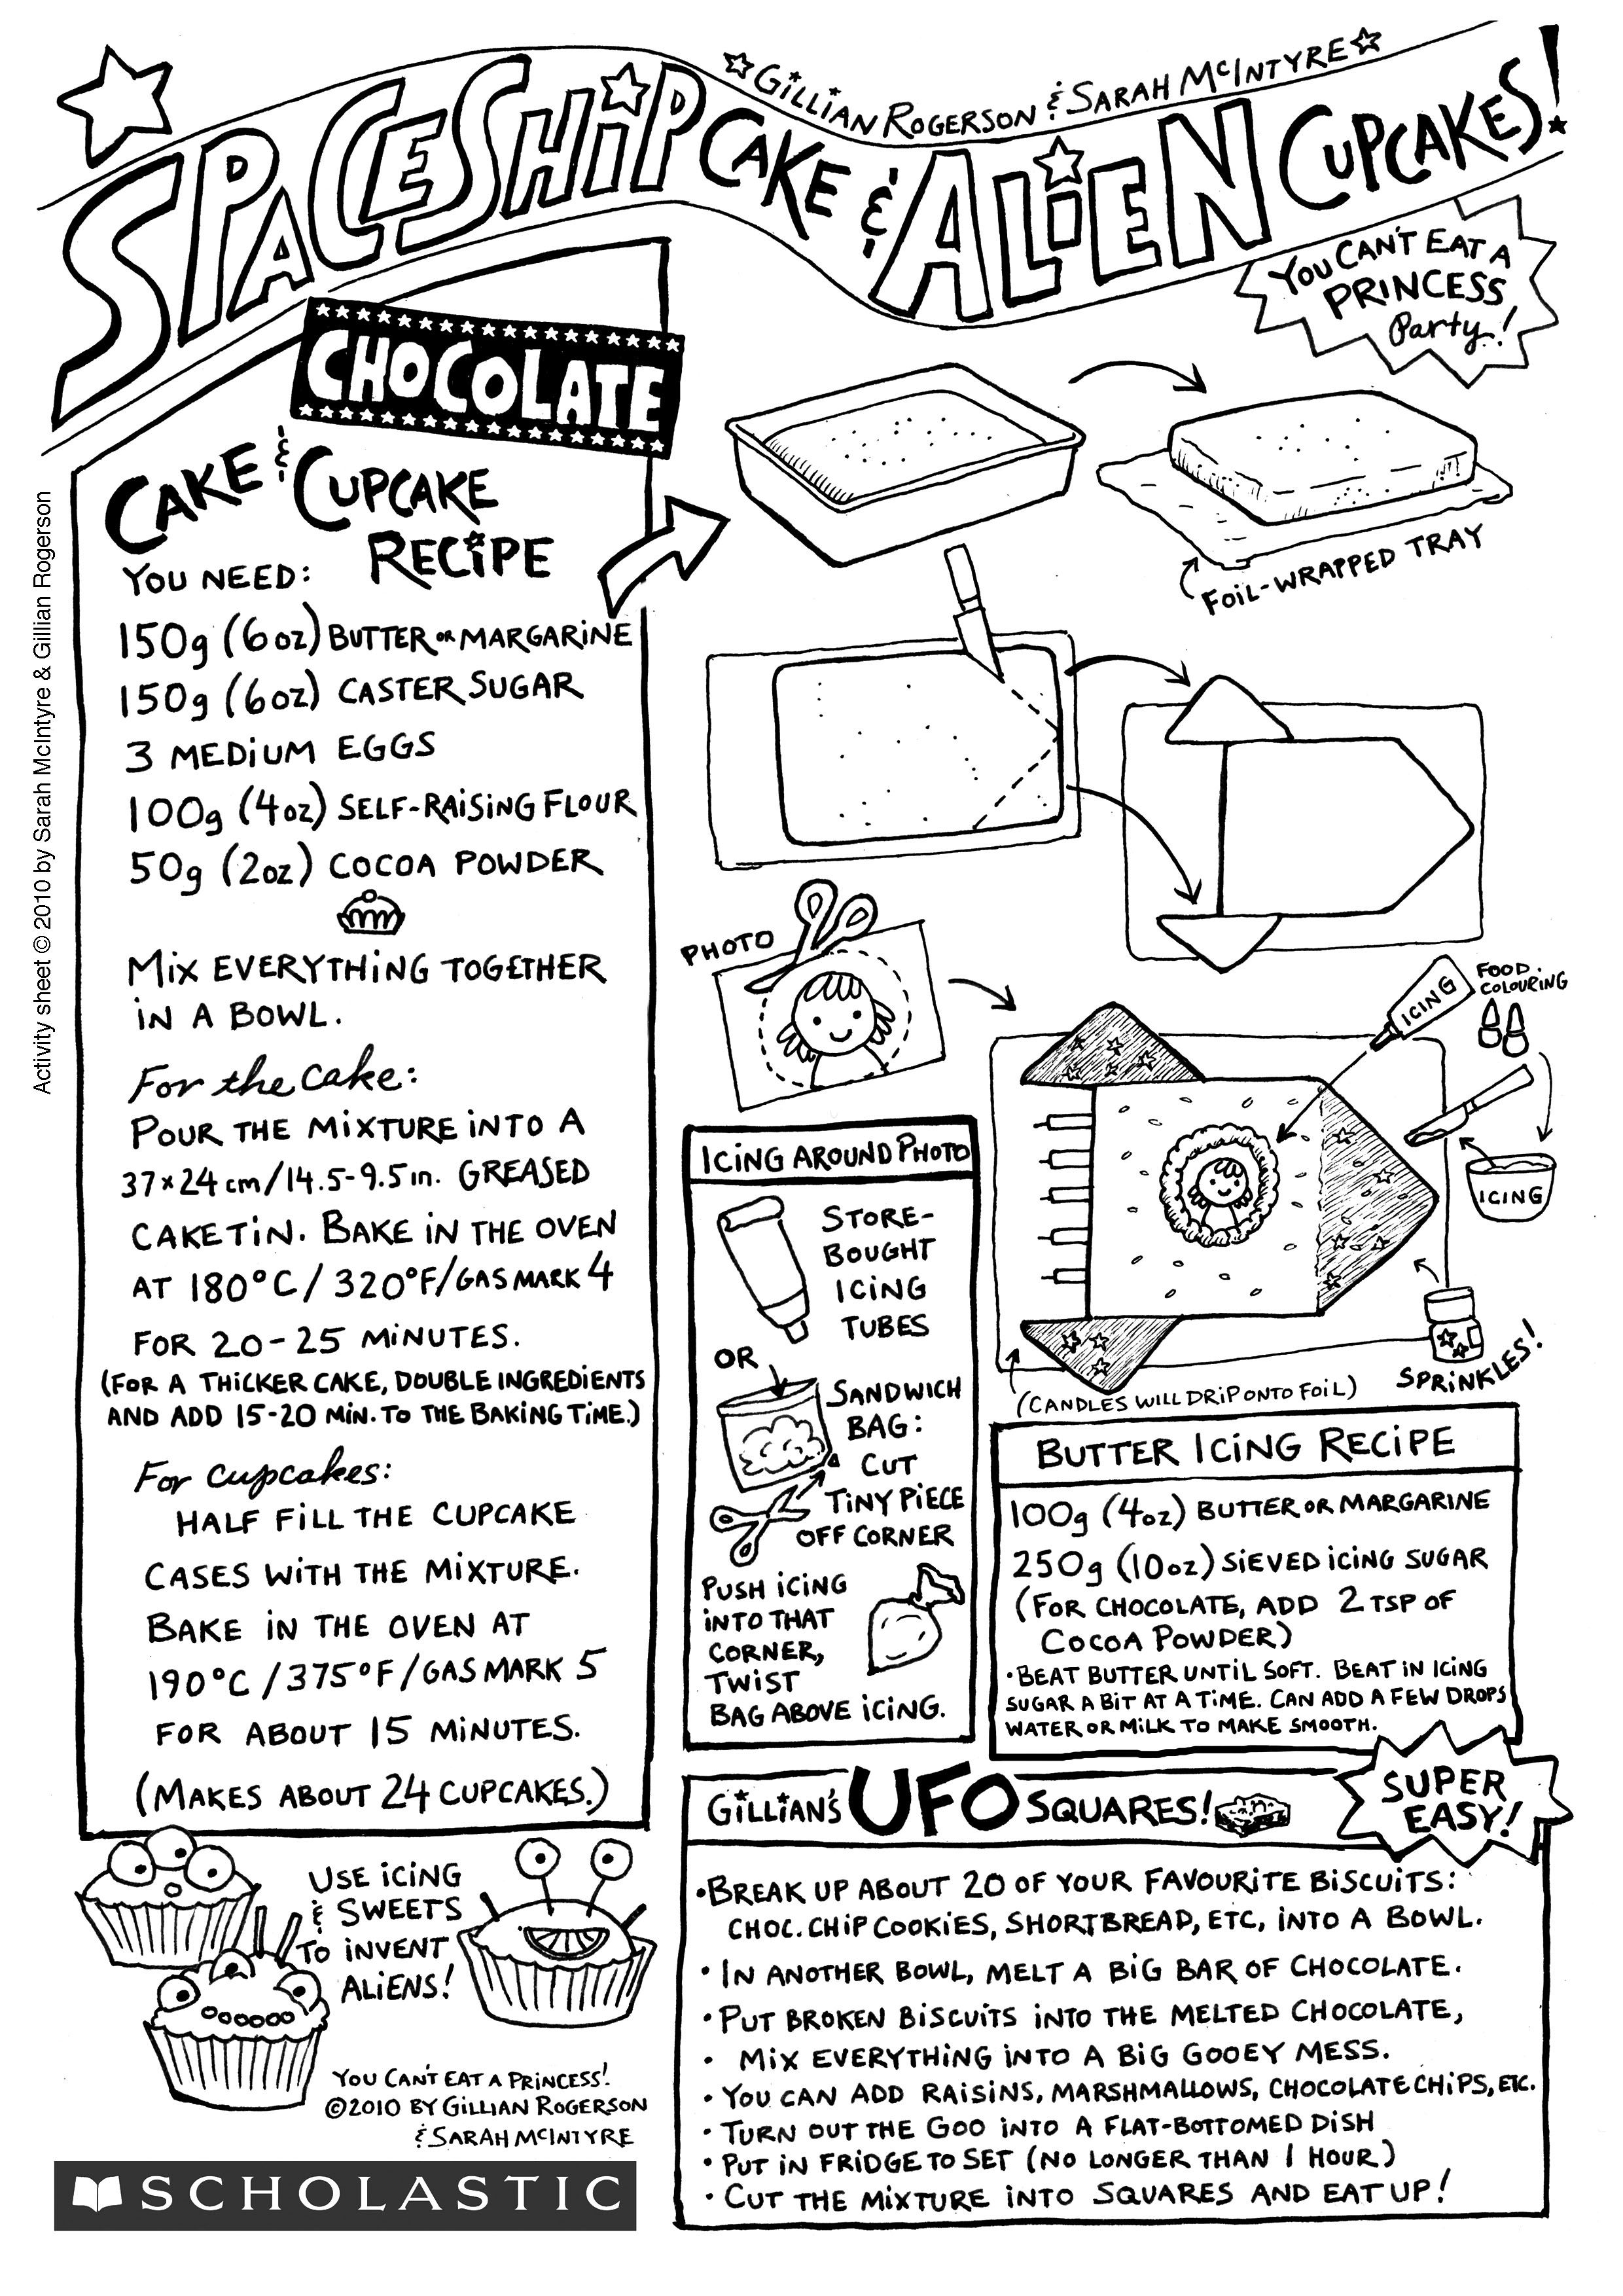 GILLIAN ROGERSON & SARAH McINTYRE
SPACESHIP CAKE & ALIEN CUPCAKES!
YOU CAN'T EAT A
PRINCESS
Party!
CHOCOLATE
CAKE & CUPCAKE
RECIPE
YOU NEED:
150g (6oz) BUTTER OR MARGARINE
150g (6oz) CASTER SUGAR
3 MEDIUM EGGS
100g (4oz) SELF-RAISING FLOUR
50g (2oz) COCOA POWDER
MIX EVERYTHING TOGETHER
IN A BOWL.
For the cake:
POUR THE MIXTURE INTO A
37×24cm/14.5-9.5in. GREASED
CAKE TIN. BAKE IN THE OVEN
AT 180°C/320°F/GAS MARK 4
FOR 20-25 MINUTES.
(FOR A THICKER CAKE, DOUBLE INGREDIENTS
AND ADD 15-20 MIN. TO THE BAKING TIME.)
For cupcakes:
HALF FILL THE CUPCAKE
CASES WITH THE MIXTURE.
BAKE IN THE OVEN AT
190°C/375°F/GAS MARK 5
FOR ABOUT 15 MINUTES.
(MAKES ABOUT 24 CUPCAKES.)
USE ICING
& SWEETS
TO INVENT
ALIENS!
YOU CAN'T EAT A PRINCESS!
©2010 BY GILLIAN ROGERSON
& SARAH McINTYRE
SCHOLASTIC
Activity sheet © 2010 by Sarah McIntyre & Gillian Rogerson
FOIL-WRAPPED TRAY
PHOTO
ICING
FOOD
COLOURING
ICING
SPRINKLES!
(CANDLES WILL DRIP ONTO FOIL)
ICING AROUND PHOTO
STORE-
BOUGHT
ICING
TUBES
OR
SANDWICH
BAG:
CUT
TINY PIECE
OFF CORNER
PUSH ICING
INTO THAT
CORNER,
TWIST
BAG ABOVE ICING.
BUTTER ICING RECIPE
100g (4oz) BUTTER OR MARGARINE
250g (10oz) SIEVED ICING SUGAR
(FOR CHOCOLATE, ADD 2 TSP OF
COCOA POWDER)
•BEAT BUTTER UNTIL SOFT. BEAT IN ICING
SUGAR A BIT AT A TIME. CAN ADD A FEW DROPS
WATER OR MILK TO MAKE SMOOTH.
GILLIAN'S UFO SQUARES!
SUPER
EASY!
•BREAK UP ABOUT 20 OF YOUR FAVOURITE BISCUITS:
CHOC. CHIP COOKIES, SHORTBREAD, ETC, INTO A BOWL.
•IN ANOTHER BOWL, MELT A BIG BAR OF CHOCOLATE.
•PUT BROKEN BISCUITS INTO THE MELTED CHOCOLATE,
• MIX EVERYTHING INTO A BIG GOOEY MESS.
•YOU CAN ADD RAISINS, MARSHMALLOWS, CHOCOLATE CHIPS, ETC.
•TURN OUT THE GOO INTO A FLAT-BOTTOMED DISH
•PUT IN FRIDGE TO SET (NO LONGER THAN 1 HOUR)
•CUT THE MIXTURE INTO SQUARES AND EAT UP!